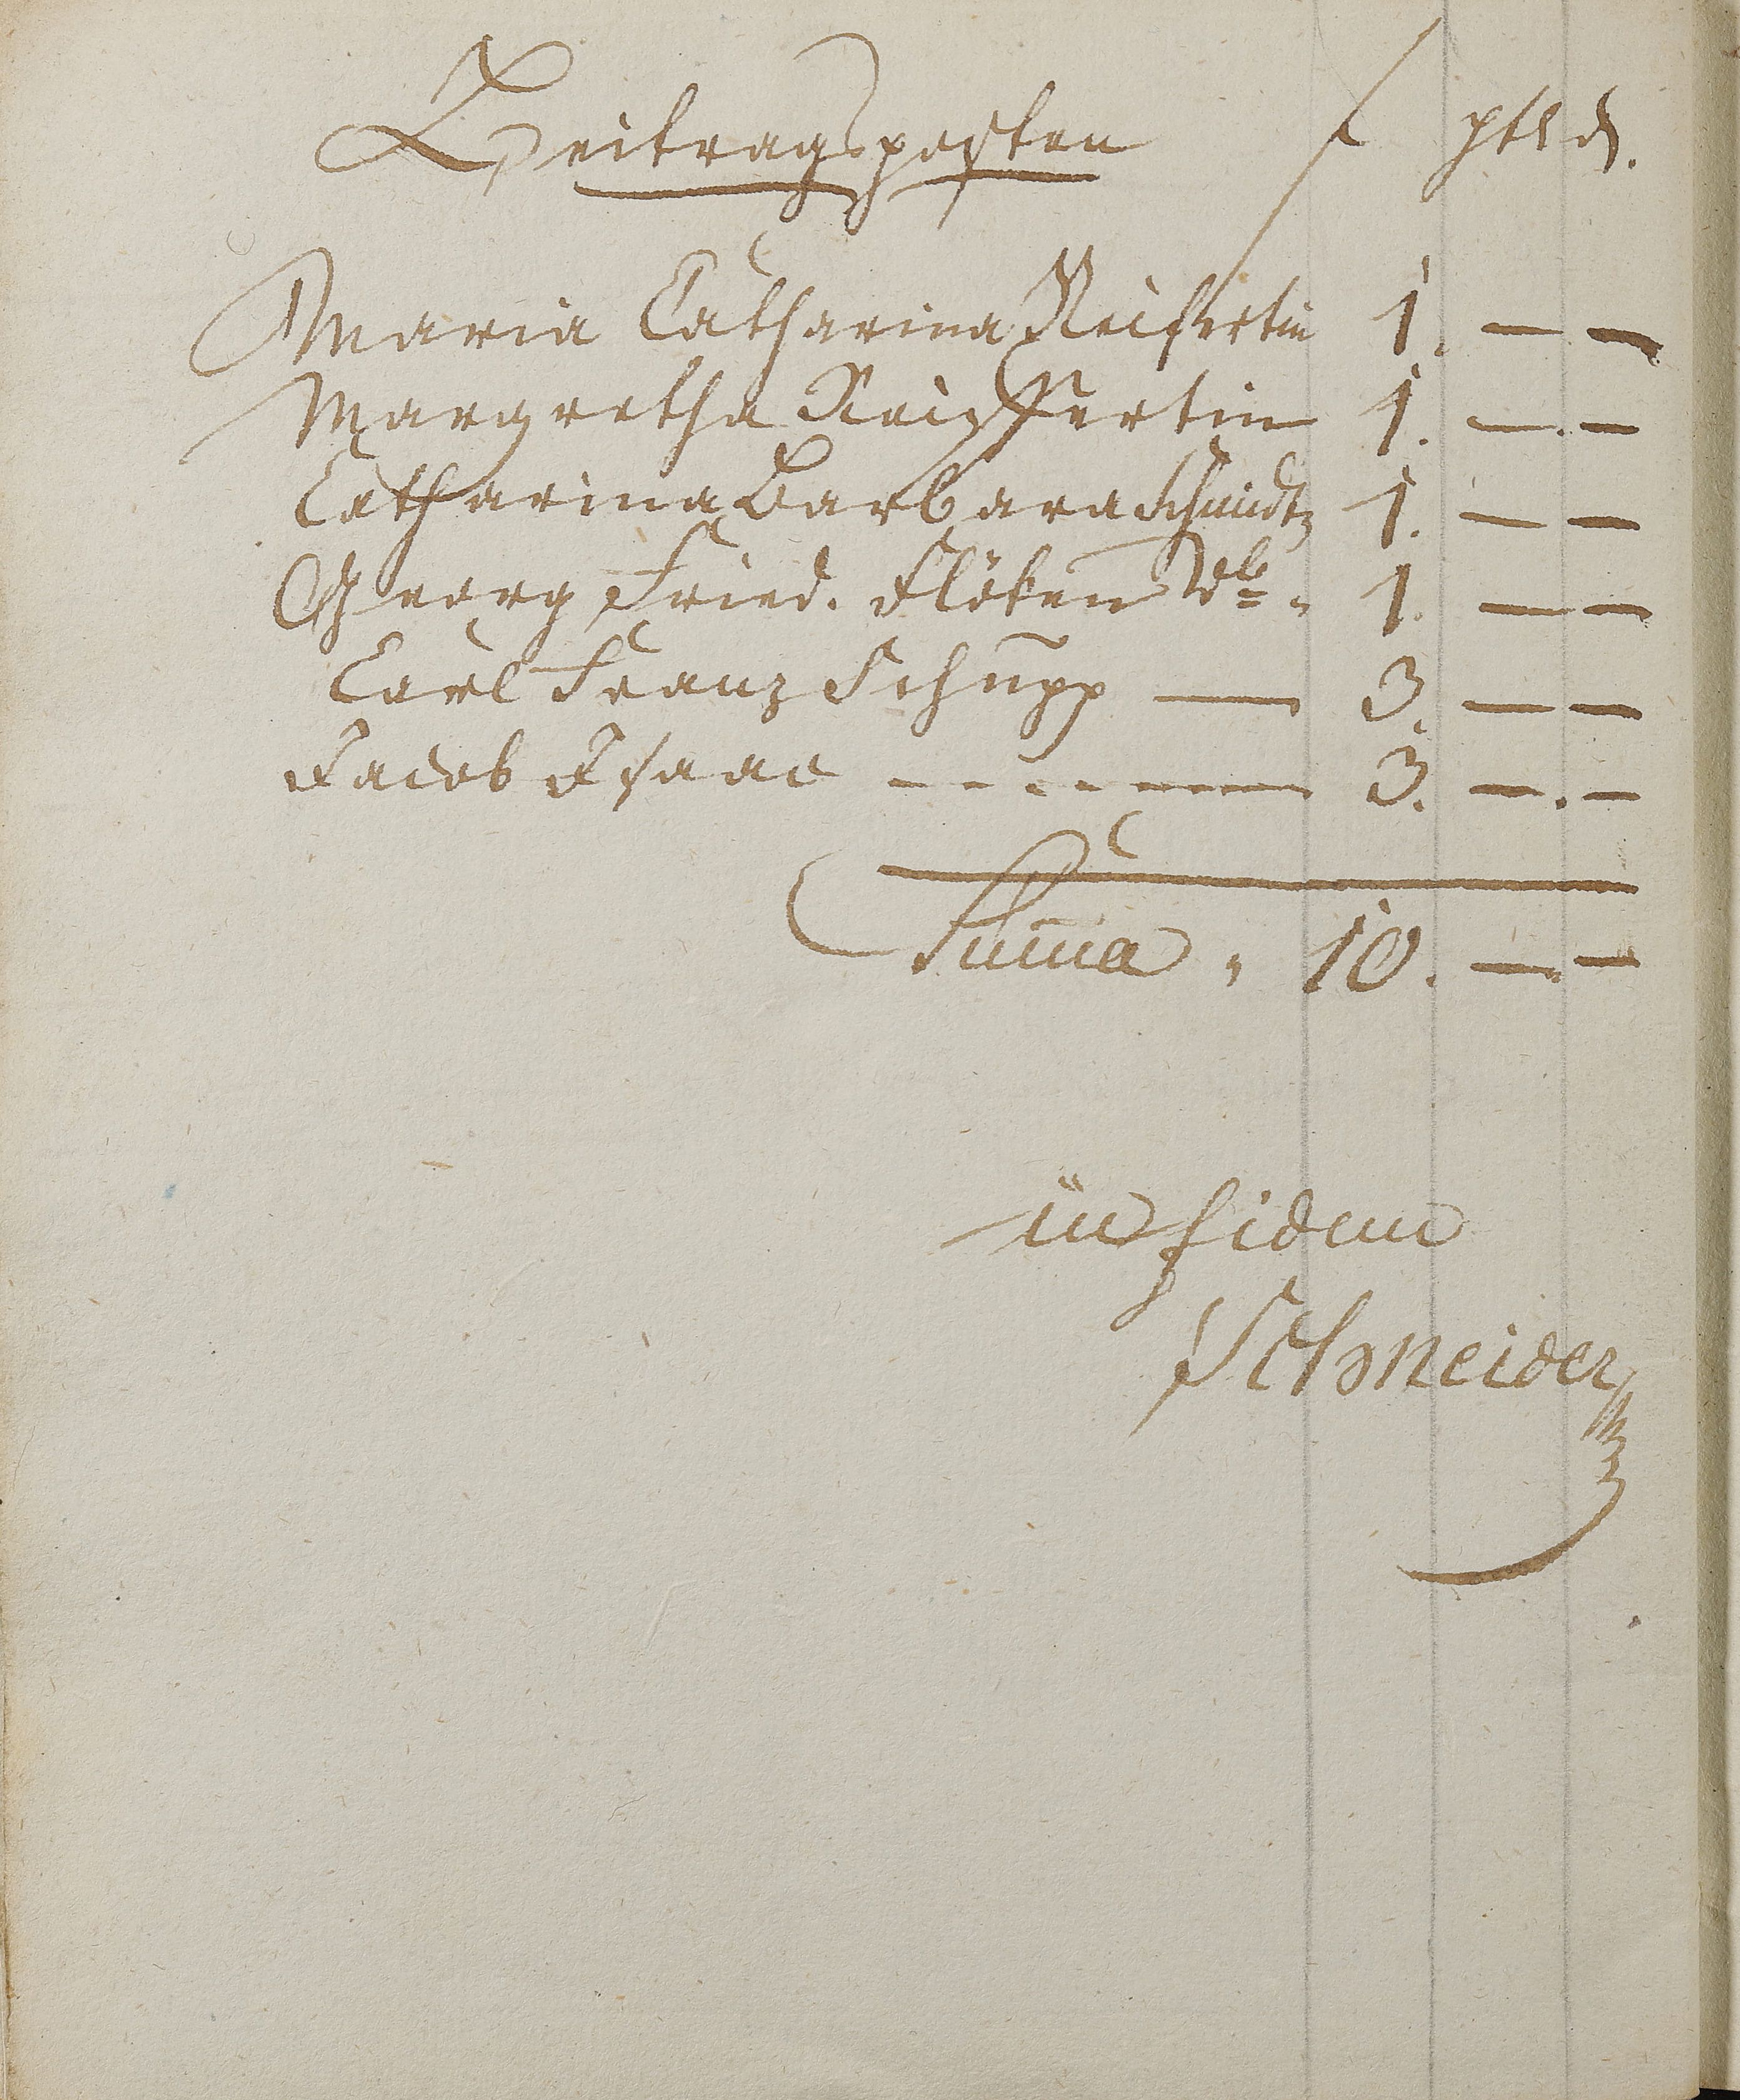 Beitragsposten f pfl d.
Maria Catharina Reifertin 1. — —
Margretha Reipffertin 1. — . —
Catharina Barbara Schmidtz 1. — —
Georg Fried. Flöken 1. — —
Carl Franz Schupp — 3. — —
Jacob Isaac - - - - — 3. — . —
Suma " 10. — . —
in fidem
Schneider